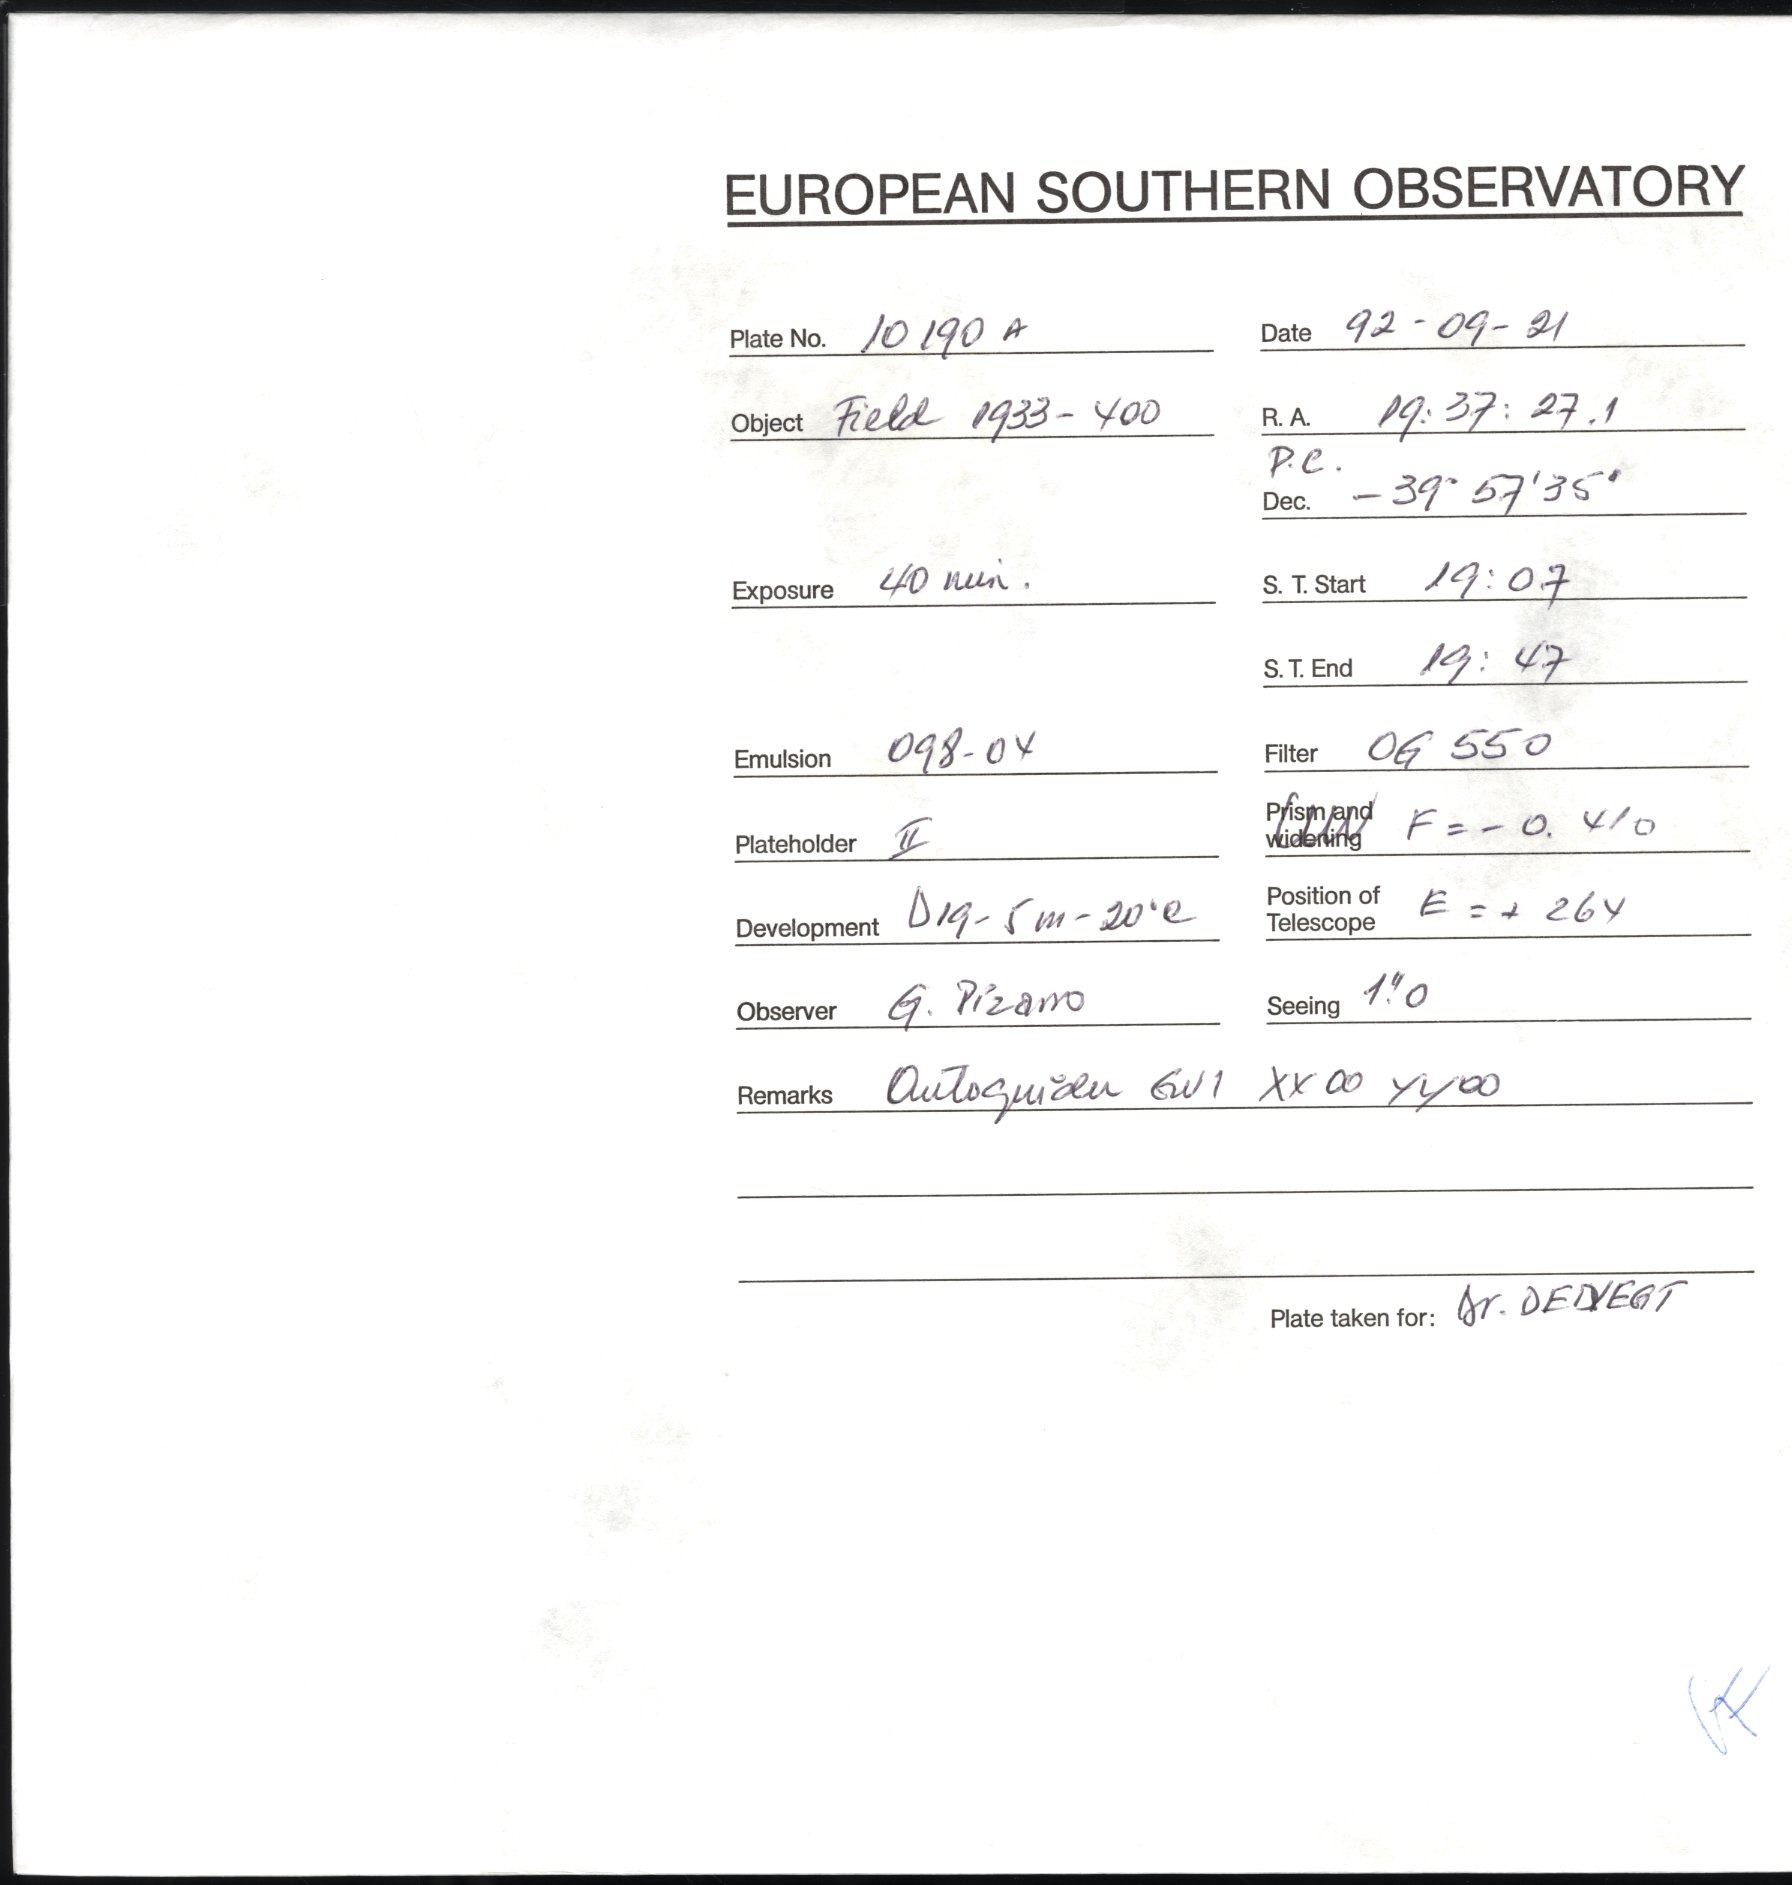 EUROPEAN SOUTHERN OBSERVATORY
Plate No. 10190 A Date 92-09-21
Object Field 1933-400 R. A. 19:37:27.1
P.C.
Dec. -39° 57'35"
Exposure 40 min. S. T. Start 19:07
S. T. End 19:47
Emulsion 098-04 Filter OG 550
Plateholder II Prism and widening F = - 0.410
Development D19-5m-20°C Position of Telescope E = + 264
Observer G. Pizarro Seeing 1"0
Remarks Autoguider GW1 XX00 YY00
Plate taken for: Dr. DEVEGT